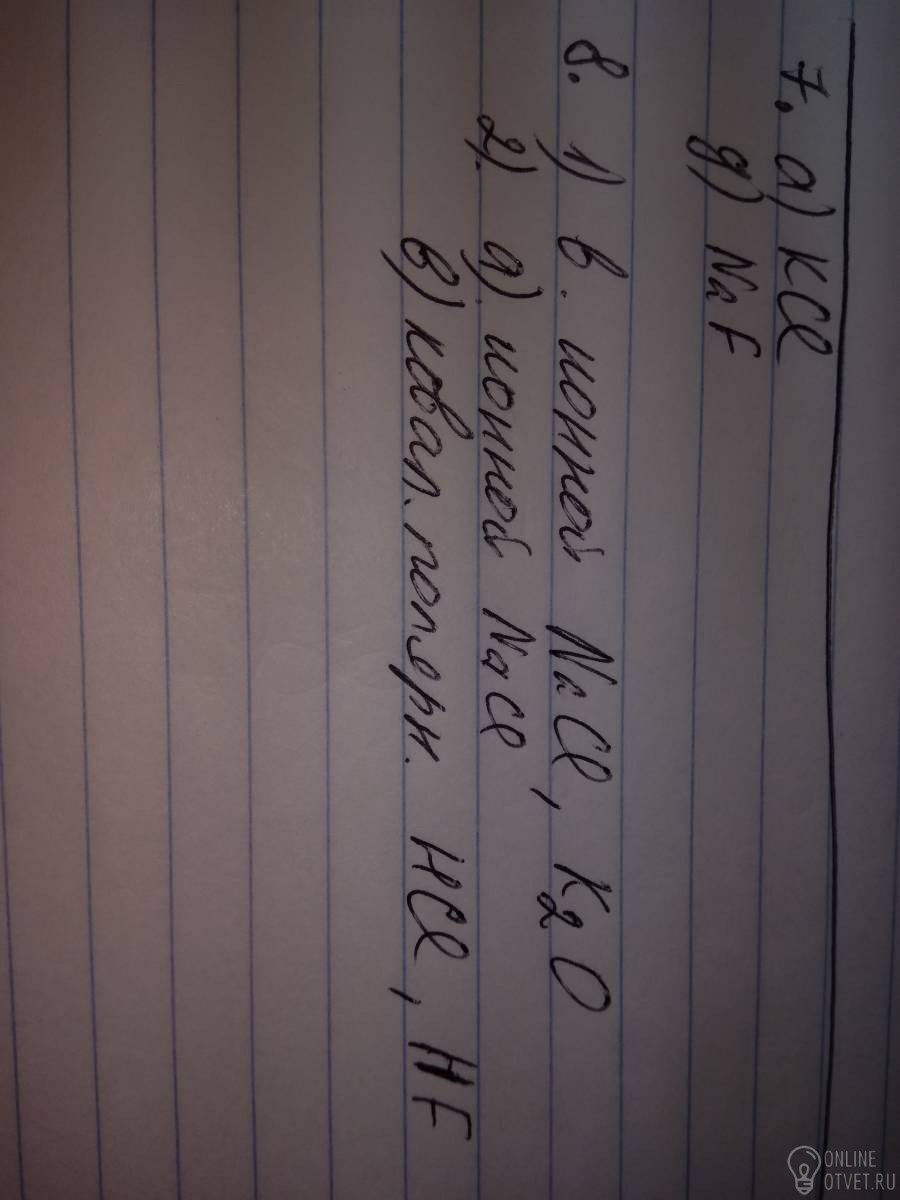 7. а) KCl
д) NaF
8. 1) в. ионной NaCl, K2O
2) д) ионной NaCl
в) ковал. полярн. HCl, HF
ONLINE
OTVET.RU